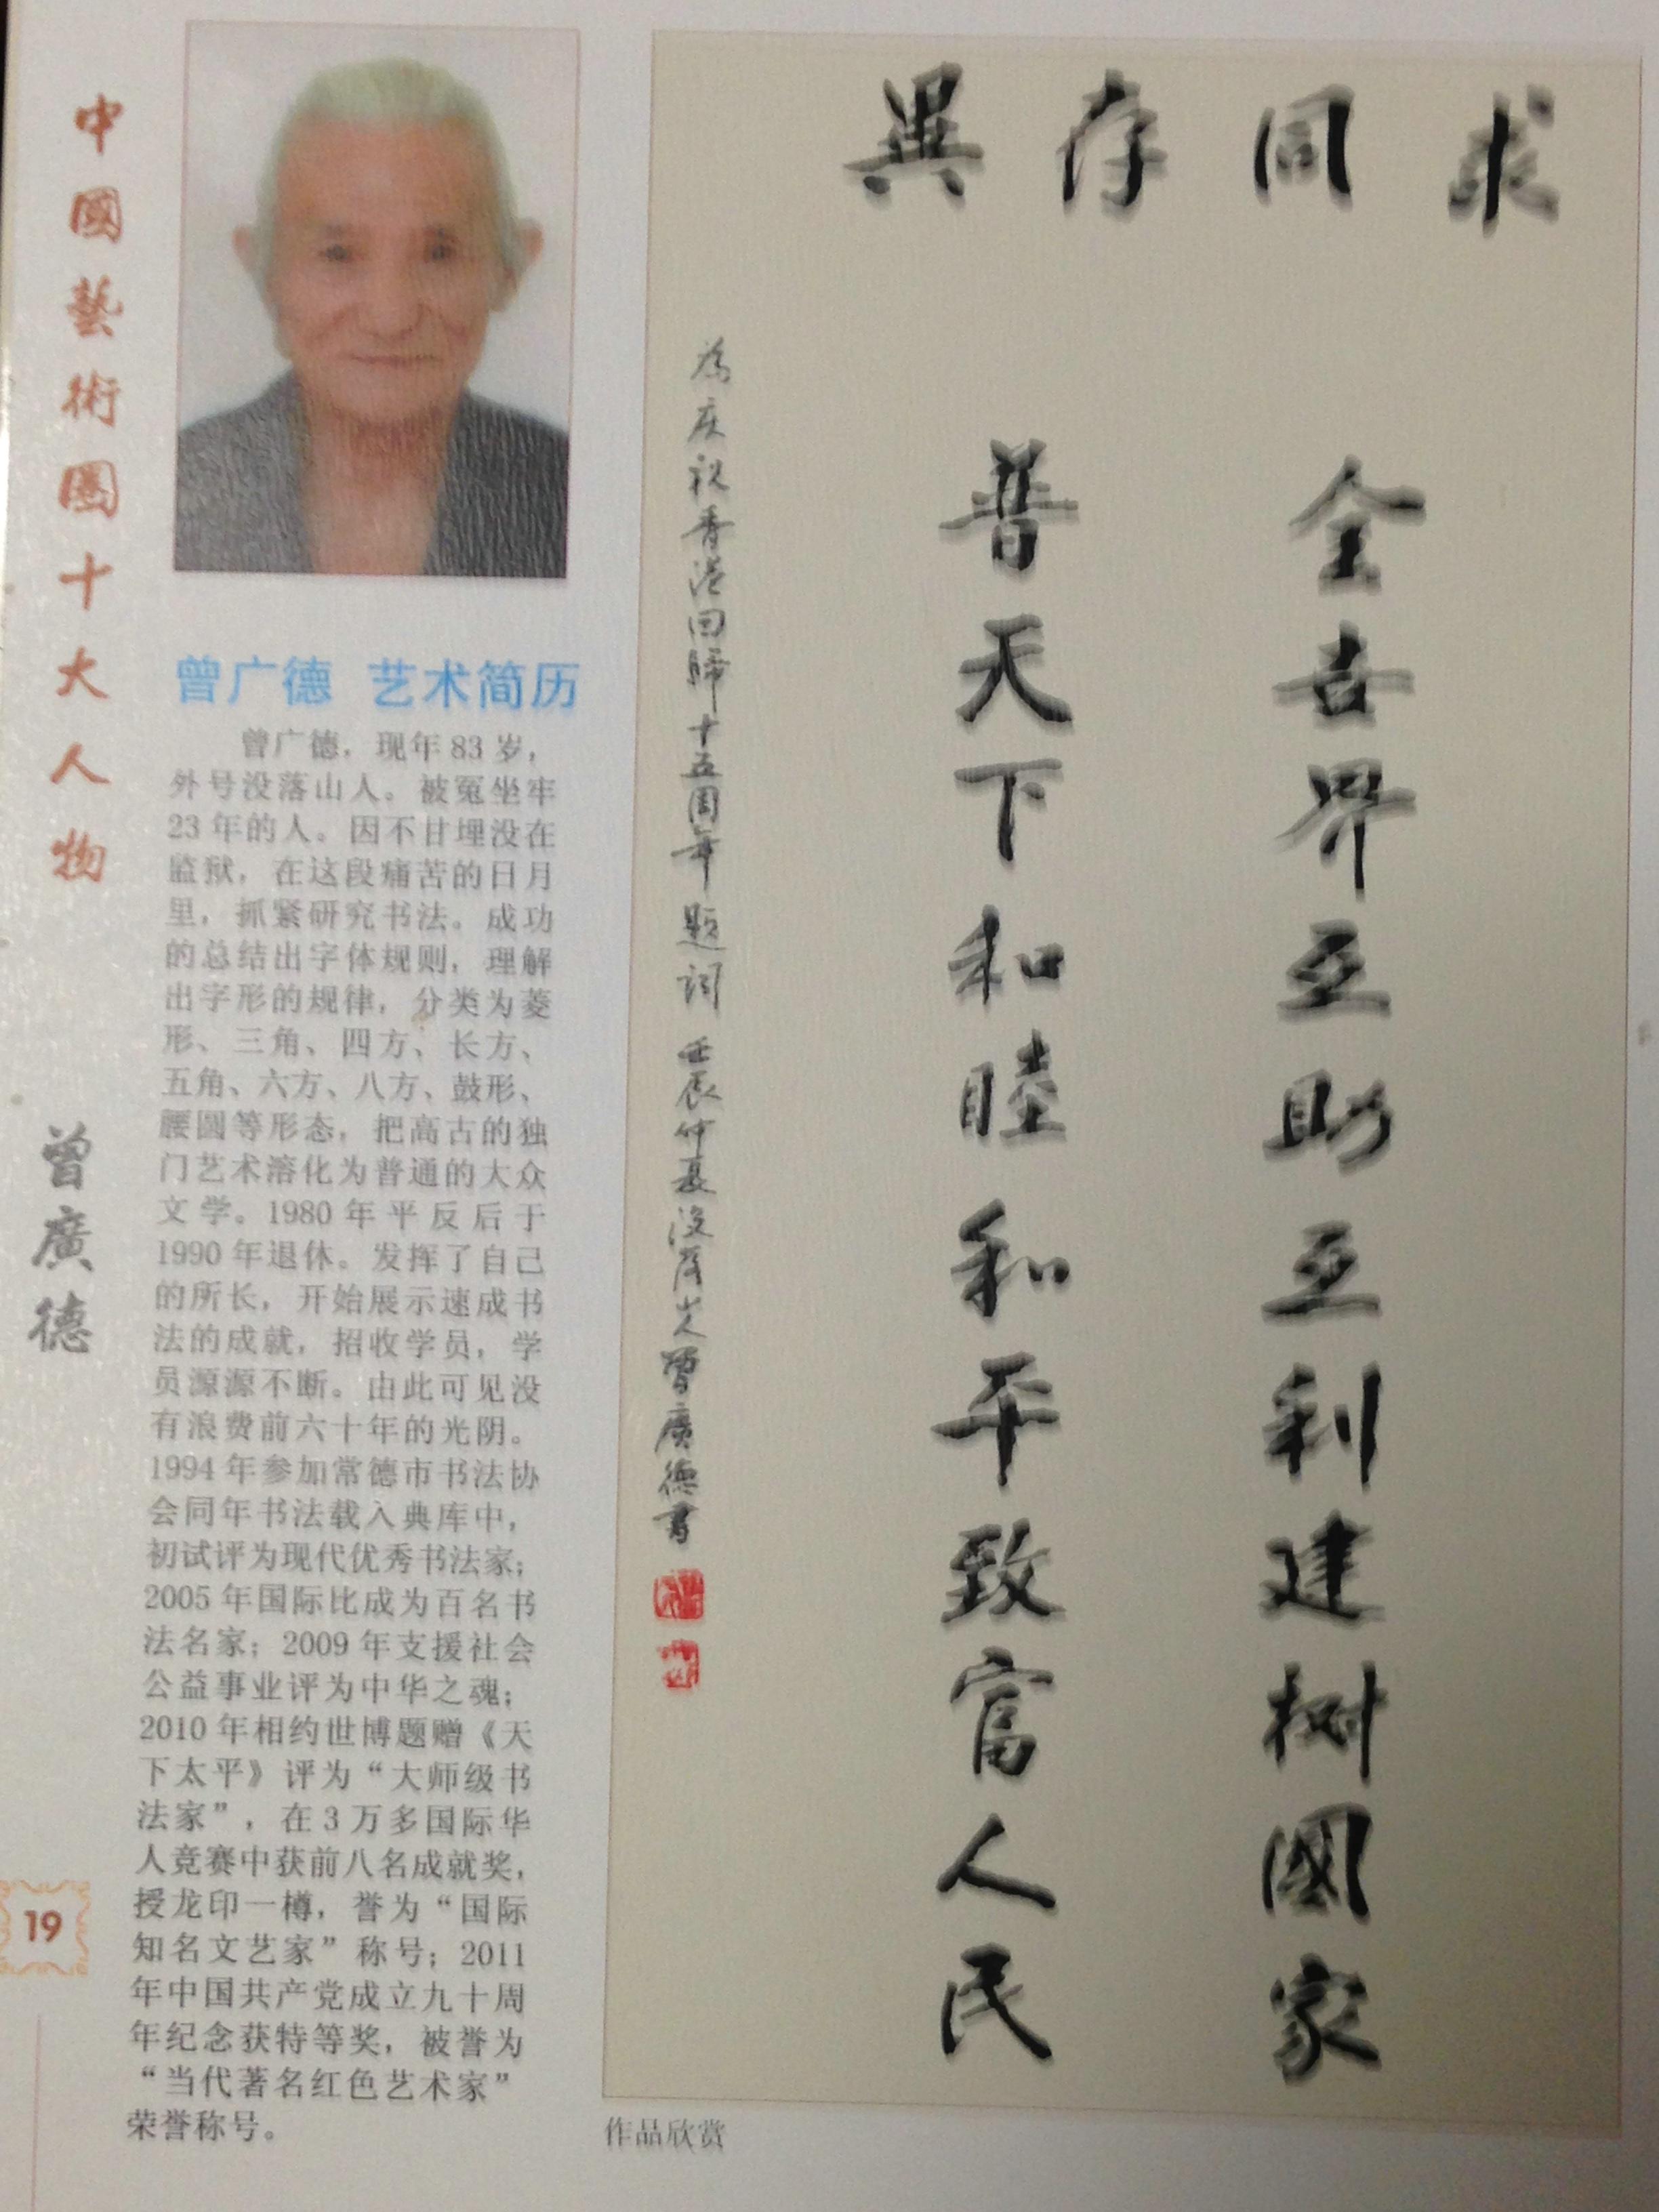 中國藝術圈十大人物
曾廣德
19
曾广德 艺术简历
曾广德，现年83岁，
外号没落山人。被冤坐牢
23年的人。因不甘埋没在
监狱，在这段痛苦的日月
里，抓紧研究书法。成功
的总结出字体规则，理解
出字形的规律，分类为菱
形、三角、四方、长方、
五角、六方、八方、鼓形、
腰圆等形态，把高古的独
门艺术溶化为普通的大众
文学。1980年平反后于
1990年退休。发挥了自己
的所长，开始展示速成书
法的成就，招收学员，学
员源源不断。由此可见没
有浪费前六十年的光阴。
1994年参加常德市书法协
会同年书法载入典库中，
初试评为现代优秀书法家；
2005年国际比成为百名书
法名家；2009年支援社会
公益事业评为中华之魂；
2010年相约世博题赠《天
下太平》评为“大师级书
法家”，在3万多国际华
人竞赛中获前八名成就奖，
授龙印一樽，誉为“国际
知名文艺家”称号；2011
年中国共产党成立九十周
年纪念获特等奖，被誉为
“当代著名红色艺术家”
荣誉称号。
求同存異
全世界互助互利建树國家
普天下和睦和平致富人民
为庆祝香港回歸十五周年题词 壬辰仲夏没落山人曾廣德書
作品欣赏